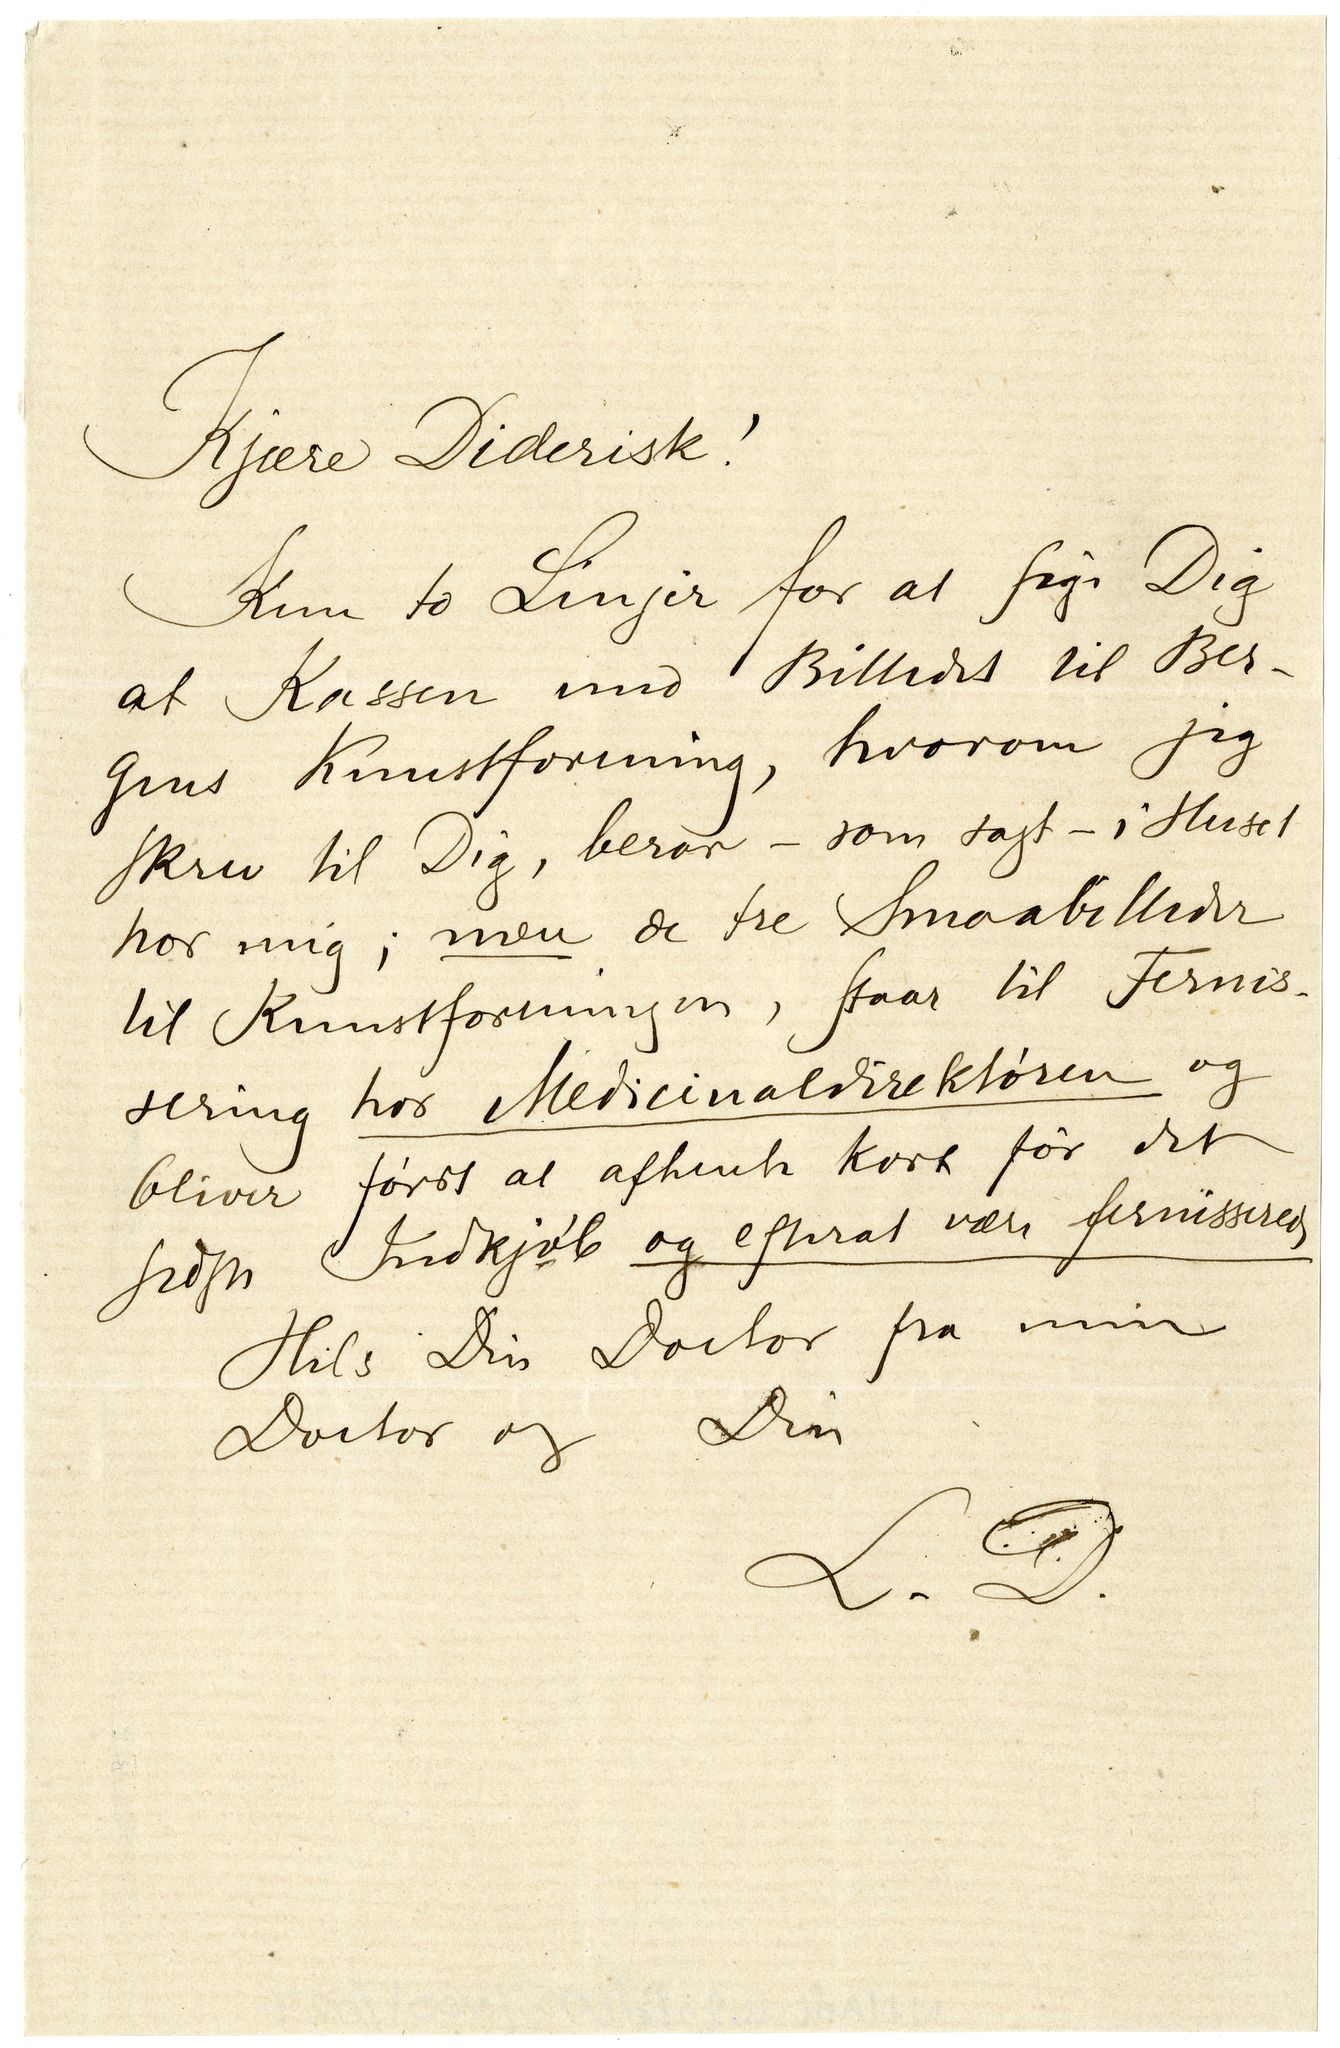 Kjære Diderisk!
Kun to Linjer for at sige Dig
at Kassen med Billedet til Ber-
gens Kunstforening, hvorom jeg
skrev til Dig, beror - som sagt - i Huset
hos mig; men de tre Smaabilleder
til Kunstforeningen, staar til Fernis-
sering hos Medicinaldirektøren og
bliver først at afhente kort før det
sidste Indkjøb og efterat være fernisserede
Hils Din Doctor fra min
Doctor og Din
L. D.